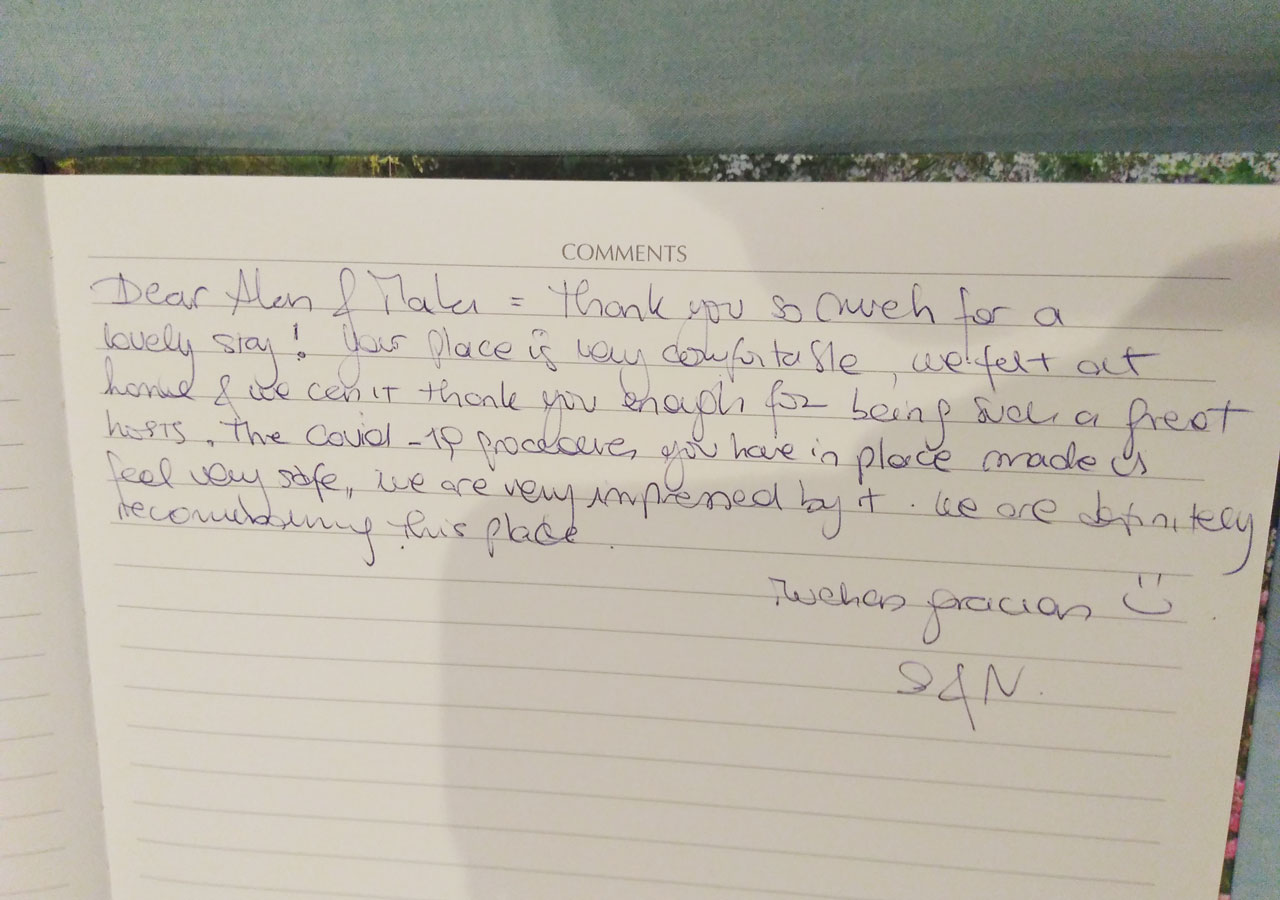 COMMENTS
Dear Alan & = Thank you so much for a
lovely stay! Your place is very comfortable, we felt at
home & we can't thank you enough for being such a great
hosts. The Covid-19 procedures you have in place made us
feel very safe, we are very impressed by it. We are definitely
this place.
Muchas gracias
S&N.